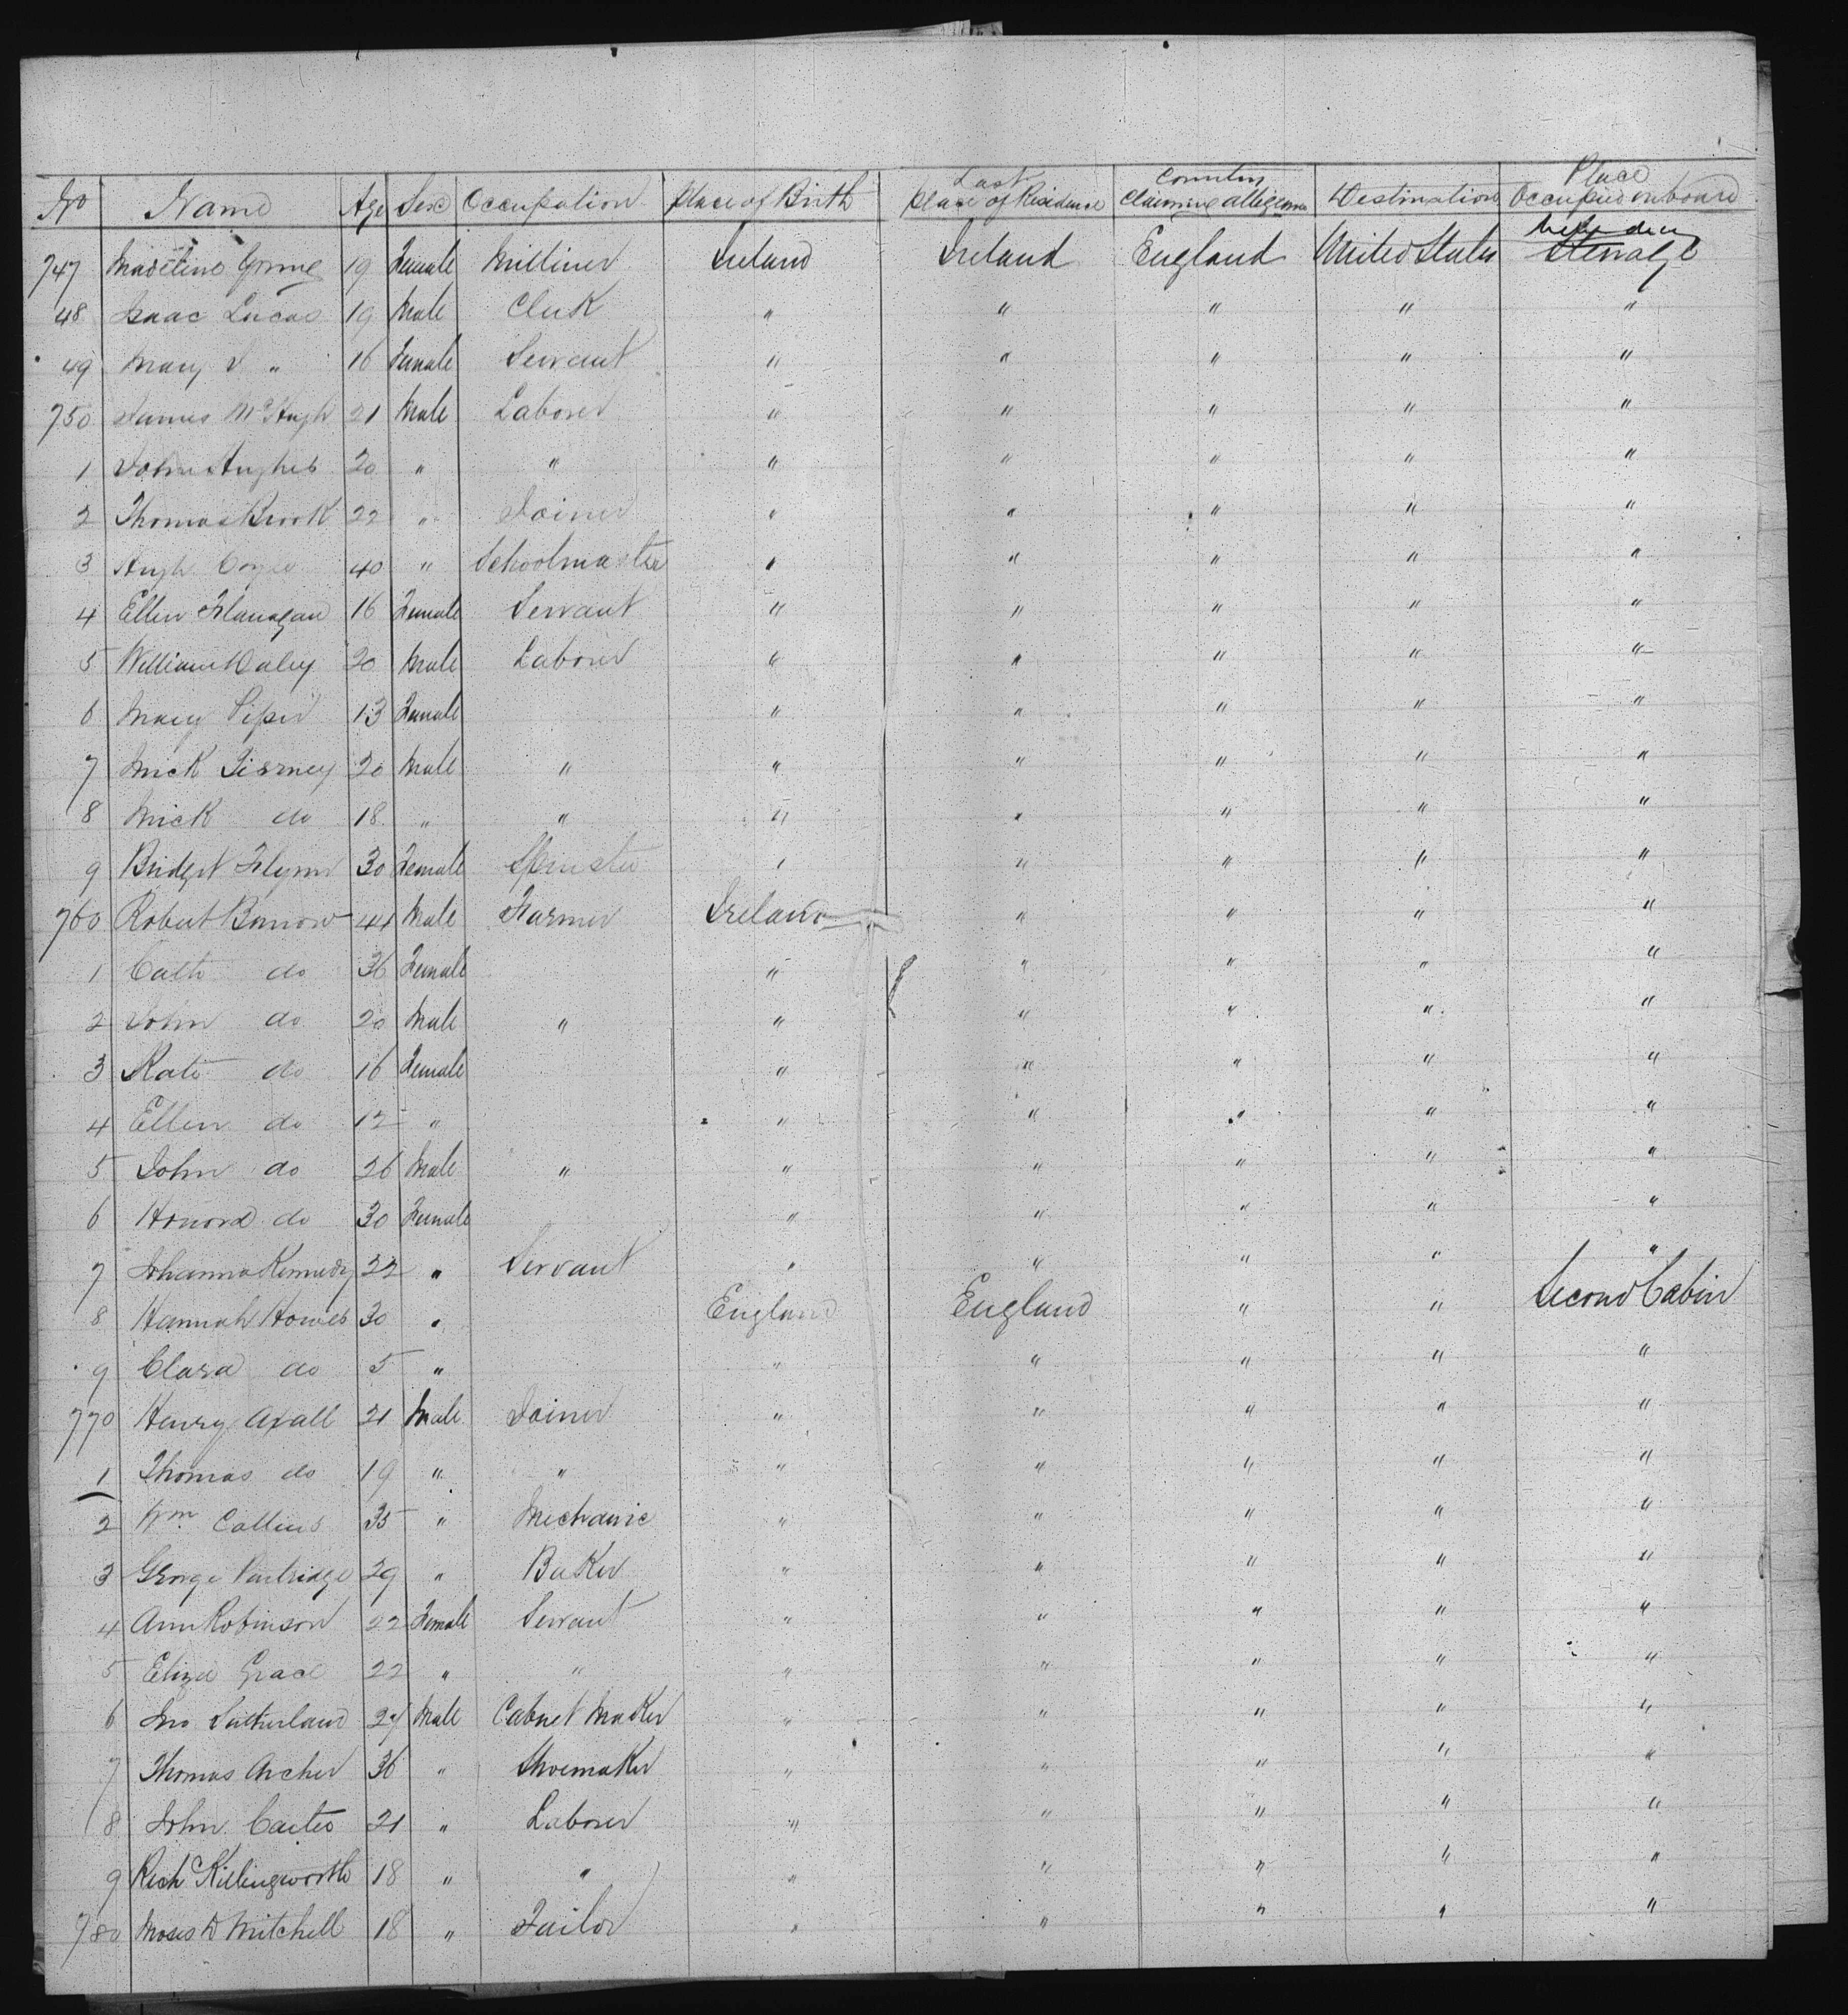 No Name Age Sex Occupation Place of Birth Last Place of Residence Country Claiming allegiance Destination Place Occupied on board
747 Madeline 19 Female Milliner Ireland Ireland England United States Steerage
48 Isaac Lucas 19 Male Clerk " " " " "
49 Mary " 16 Female Servant " " " " "
750 James McHugh 21 Male Laborer " " " " "
1 John Hughes 20 " " " " " " "
2 Thomas 22 " Joiner " " " " "
3 Hugh 40 " Schoolmaster " " " " "
4 Ellen Flanagan 16 Female Servant " " " " "
5 William Daley 20 Male Laborer " " " " "
6 Mary 13 Female " " " " "
7 Mick Tierney 20 Male " " " " " "
8 Mick do 18 " " " " " " "
9 Bridget Flynn 30 Female Spinster " " " " "
760 Robert 44 Male Farmer Ireland " " " "
1 Cath do 36 Female " " " " "
2 John do 20 Male " " " " " "
3 Kate do 16 Female " " " " "
4 Ellen do 12 " " " " " "
5 John do 26 Male " " " " " "
6 Honora do 30 Female " " " " "
7 Johanna Kennedy 22 " Servant " " " " "
8 Hannah Howes 30 " England England " " Second Cabin
9 Clara do 5 " " " " " "
770 Henry Axall 21 Male Joiner " " " " "
1 Thomas do 19 " " " " " " "
2 Wm Collins 35 " Mechanic " " " " "
3 George Partridge 29 " Baker " " " " "
4 Ann Robinson 22 Female Servant " " " " "
5 Eliza Grace 22 " " " " " " "
6 Jno Sutherland 27 Male Cabnet Maker " " " " "
7 Thomas Archer 36 " Shoemaker " " " " "
8 John Carter 21 " Laborer " " " " "
9 Rich Killingworth 18 " " " " " " "
780 Moses D Mitchell 18 " Tailor " " " " "